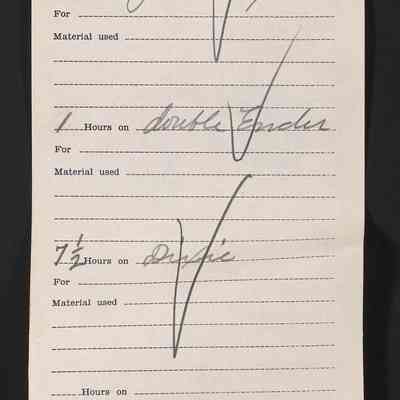 For
Material used
1 Hours on double Ender
For
Material used
7 1/2 Hours on Dixie
For
Material used
Hours on